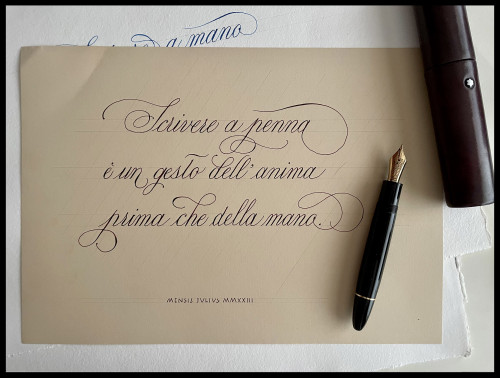 Scrivere a mano
Scrivere a penna
è un gesto dell'anima
prima che della mano.
MENSIS IULIUS MMXXIII